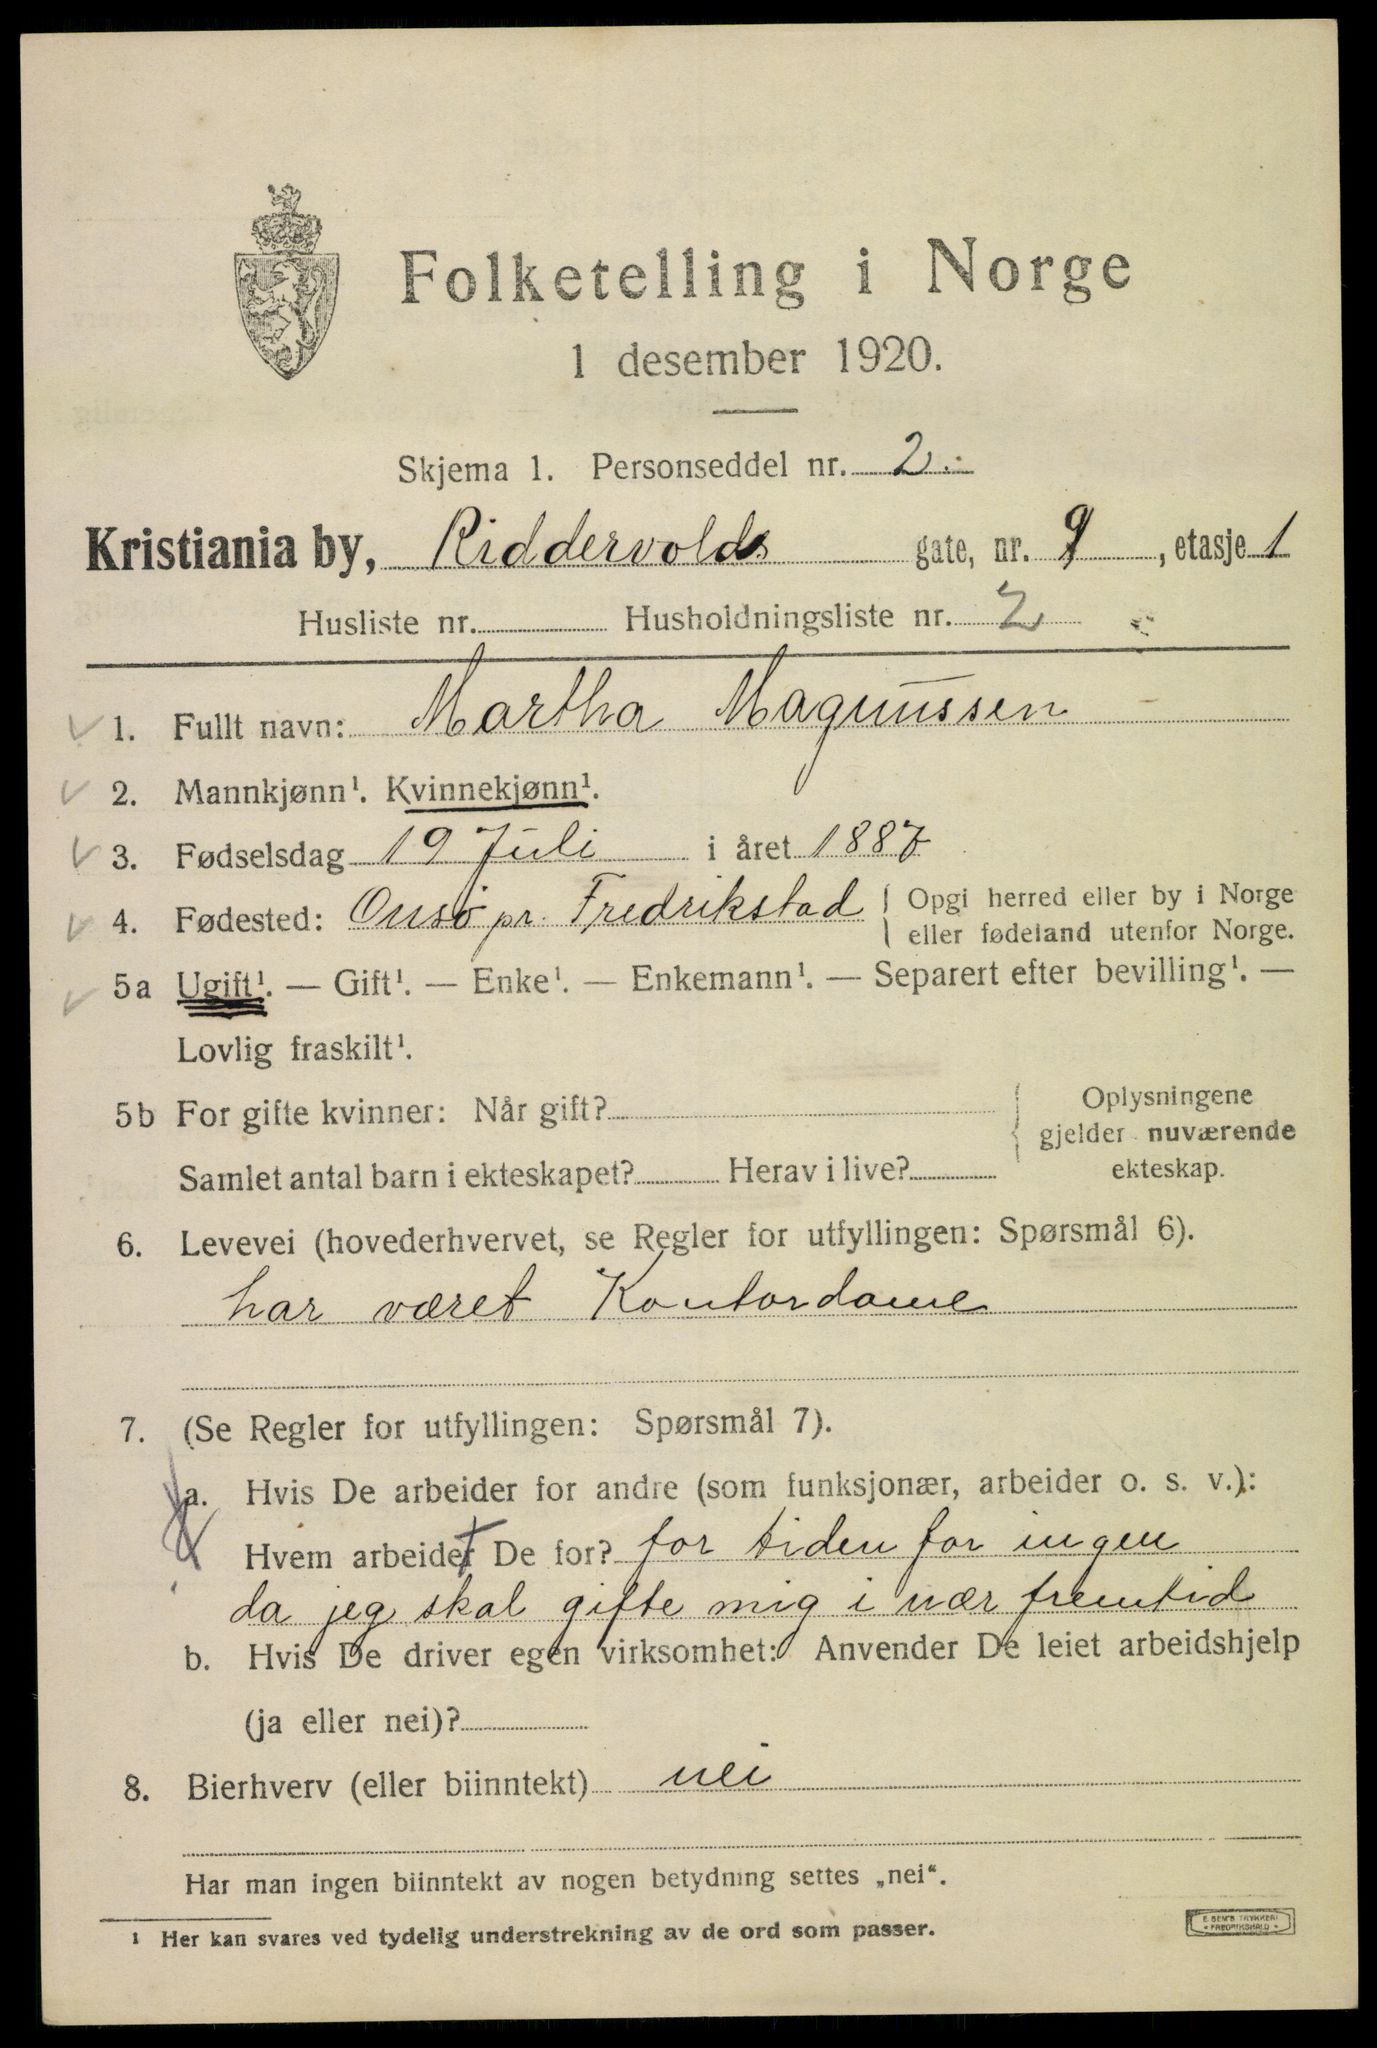 Folketelling i Norge
1 desember 1920.
Skjema 1. Personseddel nr. 2.
Kristiania by, Riddervolds gate, nr. 9, etasje 1
Husliste nr. Husholdningsliste nr. 2
1. Fullt navn: Martha Magnussen
2. Mannkjønn¹. Kvinnekjønn¹.
3. Fødselsdag 19 Juli i året 1887
4. Fødested: Onsø pr. Fredrikstad { Opgi herred eller by i Norge
eller fødeland utenfor Norge.
5a Ugift¹. — Gift¹. — Enke¹. — Enkemann¹. — Separert efter bevilling¹. —
Lovlig fraskilt¹.
5b For gifte kvinner: Når gift? { Oplysningene
gjelder nuværende
Samlet antal barn i ekteskapet? Herav i live? ekteskap.
6. Levevei (hovederhvervet, se Regler for utfyllingen: Spørsmål 6).
har været Kontordame
7. (Se Regler for utfyllingen: Spørsmål 7).
a. Hvis De arbeider for andre (som funksjonær, arbeider o. s. v.):
Hvem arbeidet De for? for tiden for ingen
da jeg skal gifte mig i nær fremtid
b. Hvis De driver egen virksomhet: Anvender De leiet arbeidshjelp
(ja eller nei)?
8. Bierhverv (eller biinntekt) nei
Har man ingen biinntekt av nogen betydning settes „nei“.
¹ Her kan svares ved tydelig understrekning av de ord som passer.
E SEM'S TRYKKERI
FREDRIKSHALD